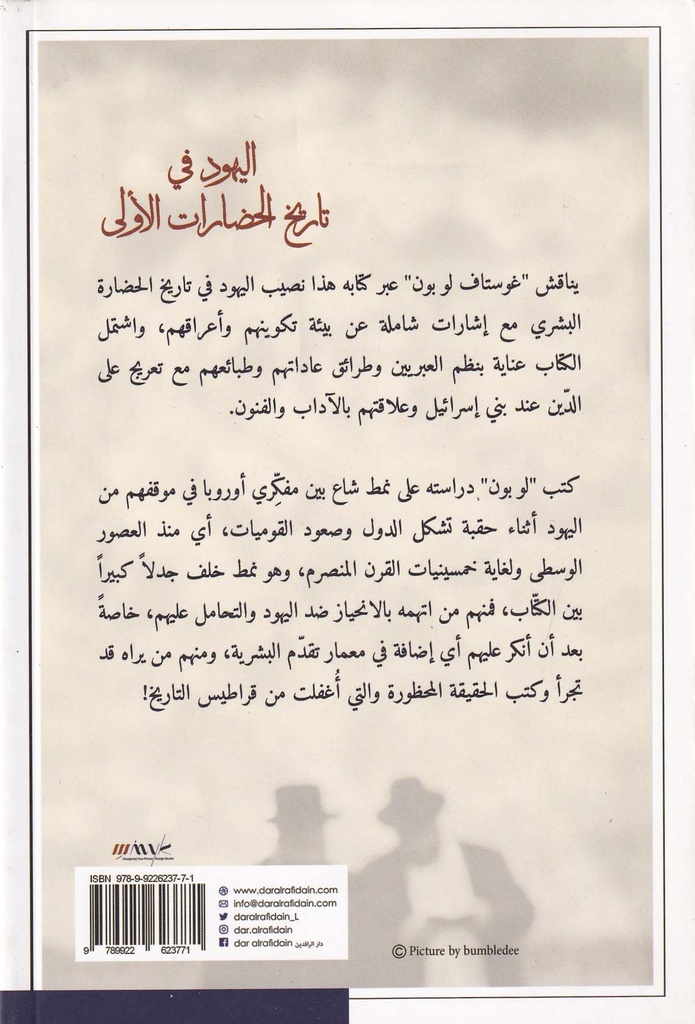 اليهود في
تاريخ الحضارات الأولى
يناقش "غوستاف لو بون" عبر كتابه هذا نصيب اليهود في تاريخ الحضارة
البشري مع إشارات شاملة عن بيئة تكوينهم وأعراقهم، واشتمل
الكتاب عناية بنظم العبريين وطرائق عاداتهم وطبائعهم مع تعريج على
الدّين عند بني إسرائيل وعلاقتهم بالآداب والفنون.
كتب "لو بون" دراسته على نمط شاع بين مفكّري أوروبا في موقفهم من
اليهود أثناء حقبة تشكل الدول وصعود القوميات، أي منذ العصور
الوسطى ولغاية خمسينيات القرن المنصرم، وهو نمط خلف جدلاً كبيراً
بين الكتّاب، فمنهم من اتهمه بالانحياز ضد اليهود والتحامل عليهم، خاصةً
بعد أن أنكر عليهم أي إضافة في معمار تقدّم البشرية، ومنهم من يراه قد
تجرأ وكتب الحقيقة المحظورة والتي أُغفلت من قراطيس التاريخ!
ISBN 978-9-9226237-7-1
9 789922 623771
www.daralrafidain.com
info@daralrafidain.com
daralrafidain_L
dar.alrafidain
dar alrafidain دار الرافدين
© Picture by bumbledee